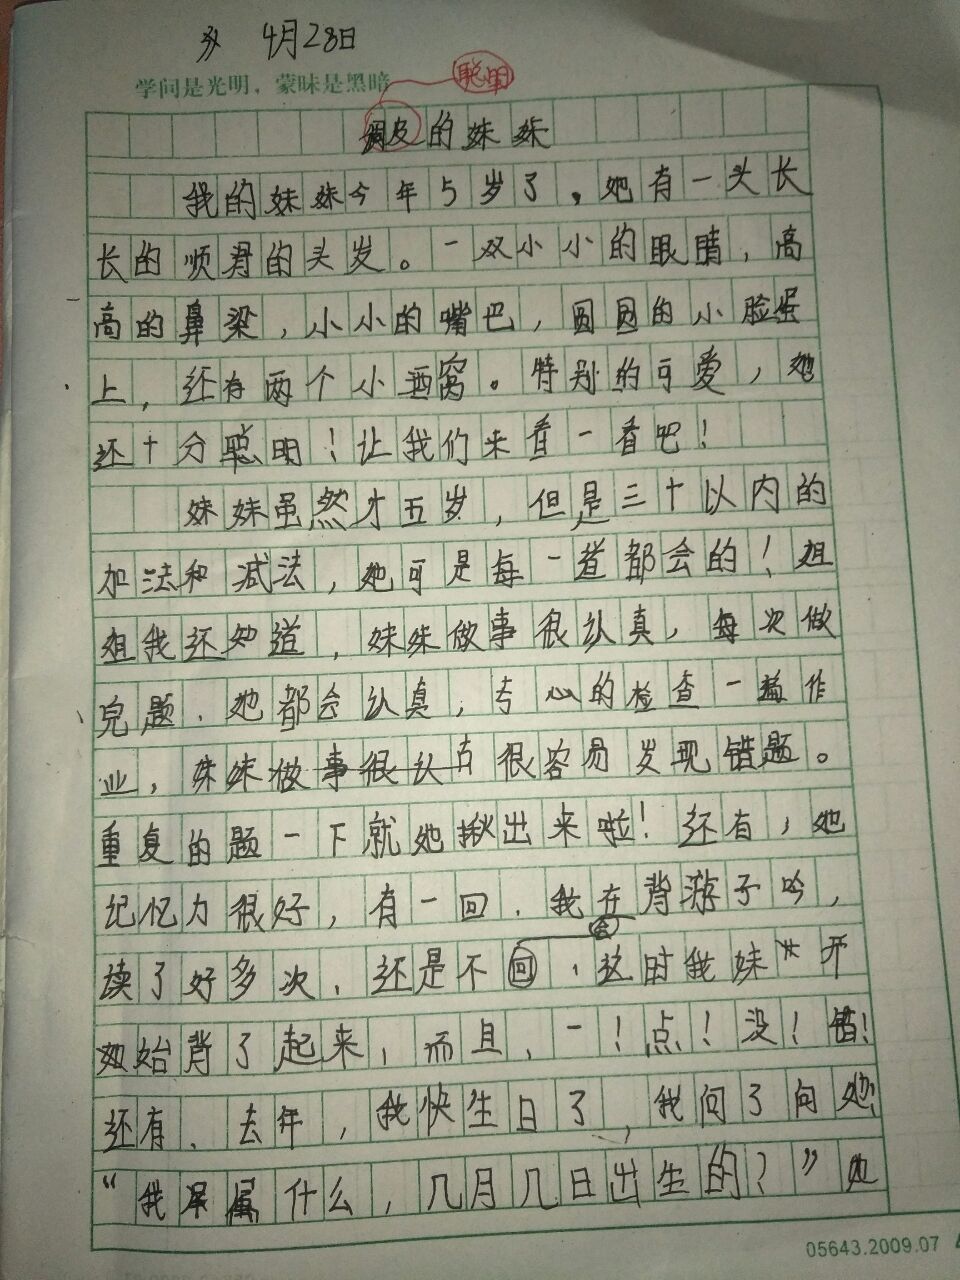 4月28日
学问是光明，蒙昧是黑暗
聪明
调皮的妹妹
我的妹妹今年5岁了，她有一头长
长的顺君的头发。一双小小的眼睛，高
高的鼻梁，小小的嘴巴，圆圆的小脸蛋
上，还有两个小酒窝。特别的可爱，她
还十分聪明！让我们来看一看吧！
妹妹虽然才五岁，但是三十以内的
加法和减法，她可是每一道都会的！姐
姐我还知道，妹妹做事很认真，每次做
完题，她都会认真，专心的检查一遍作
业，妹妹做事很认真很容易发现错题。
重复的题一下就她揪出来啦！还有，她
记忆力很好，有一回，我在背游子吟，
会
读了好多次，还是不回，这时我妹〃开
始背了起来，而且，一！点！没！错！
还有、去年，我快生日了，我问了问她
“我属什么，几月几日出生的？”她
05643.2009.07